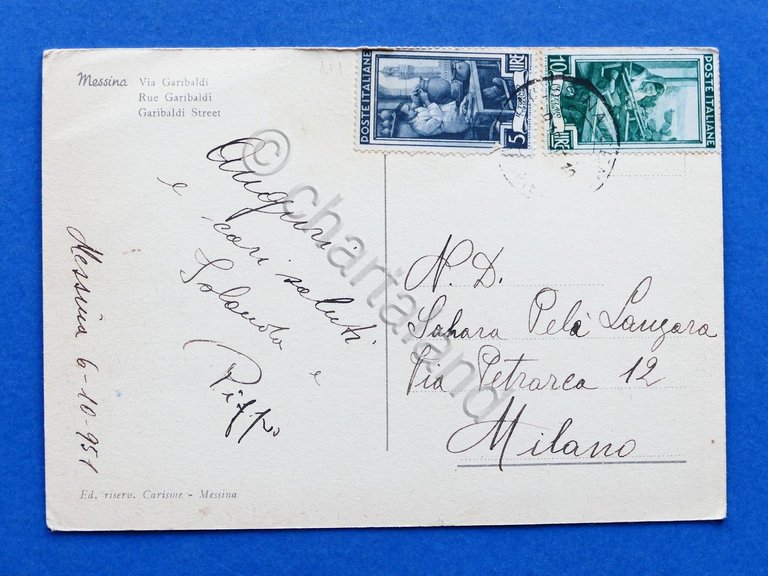 Messina Via Garibaldi
Rue Garibaldi
Garibaldi Street
POSTE ITALIANE
5 LIRE
LIRE 10
POSTE ITALIANE
Auguri
e cari saluti
e
Pippo
Messina 6-10-951
N. D.
Sahara Pelà Lanzara
Via Petrarca 12
Milano
Ed. riserv. Carisme - Messina
© chartaland